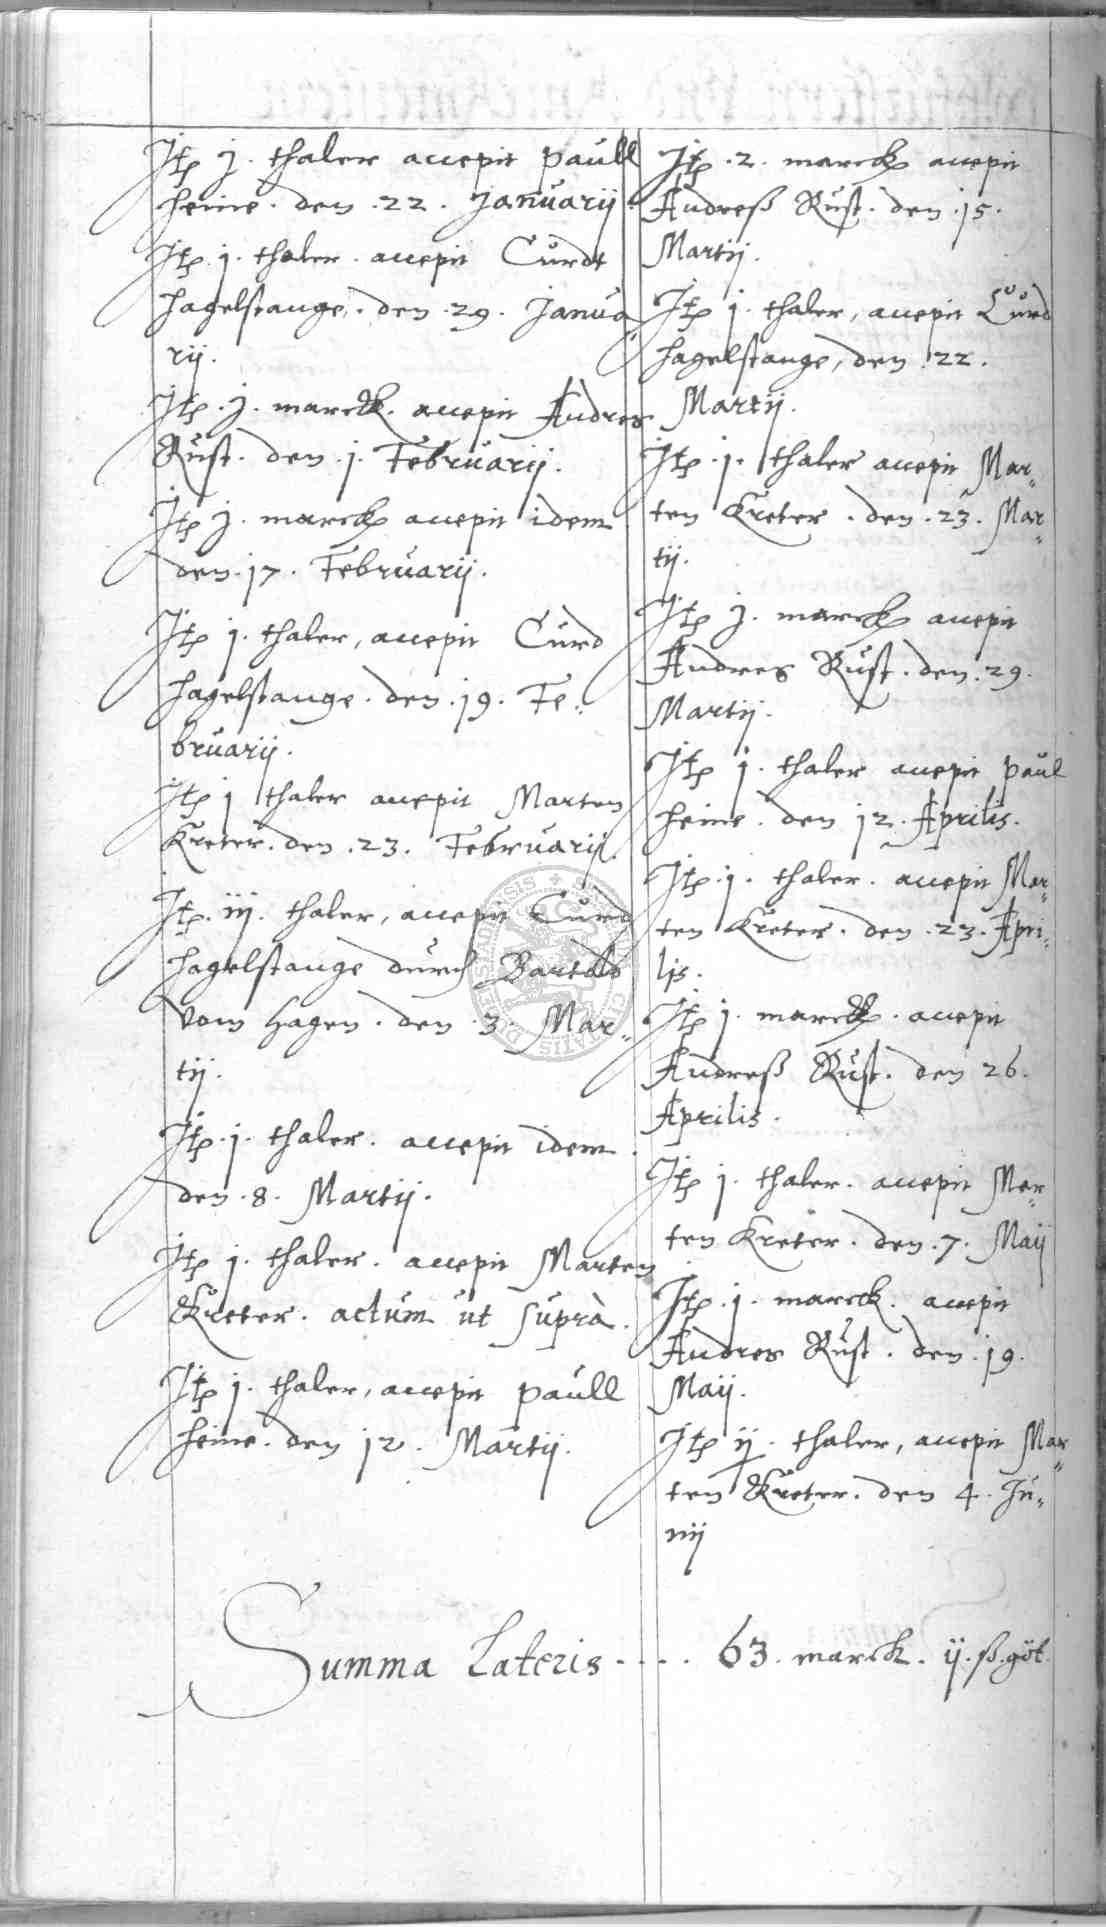 Itp j. thaler accepit Paull
Heine. den .22. Januarij.
Itp. j. thaler. accepit Curdt
Hagelstange. den .29. Janua
rij.
Itp. j. marck. accepit Andres
Rust. den .j. Februarij.
Itp j. marck accepit idem
den .17. Februarij.
Itp j. thaler, accepit Curd
Hagelstange. den .19. Fe„
bruarij.
Itp j thaler accepit Marten
Kreter. den .23. Februarij.
Itp. iij. thaler, accepit Curd
Hagelstange durch Bartold
vom Hagen. den .3. Mar„
tij.
Itp. j. thaler. accepit idem.
den .8. Martij.
Itp j. thaler. accepit Marten
Kreter. actum ut suprà.
Itp j. thaler, accepit Paull
Heine. den 12. Martij.
Itp .2. marck accepit
Andreß Rust. den .15.
Martij.
Itp j. thaler, accepit Curd
Hagelstange, den .22.
Martij.
Itp. j. thaler accepit Mar„
ten Kreter. den .23. Mar„
tij.
Itp j. marck accepit
Andres Rust. den .29.
Martij.
Itp j. thaler accepit Paul
Heine. den 12. Aprilis.
Itp. j. thaler. accepit Mar„
ten Kreter. den .23. Apri„
lis.
Itp j. marck. accepit
Andreß Rust. den 26.
Aprilis.
Itp j. thaler. accepit Mar„
ten Kreter. den .7. Maij
Itp. j. marck. accepit
Andres Rust. den .19.
Maij.
Itp ij. thaler, accepit Mar„
ten Kreter. den 4. Iu„
nij
Summa Lateris .... 63. marck. ij. ß. göt.